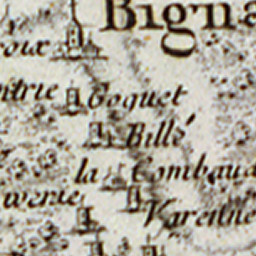 Bigna
roix
ntrie Coquet
Billé
la Combaud
iverie
Varenne